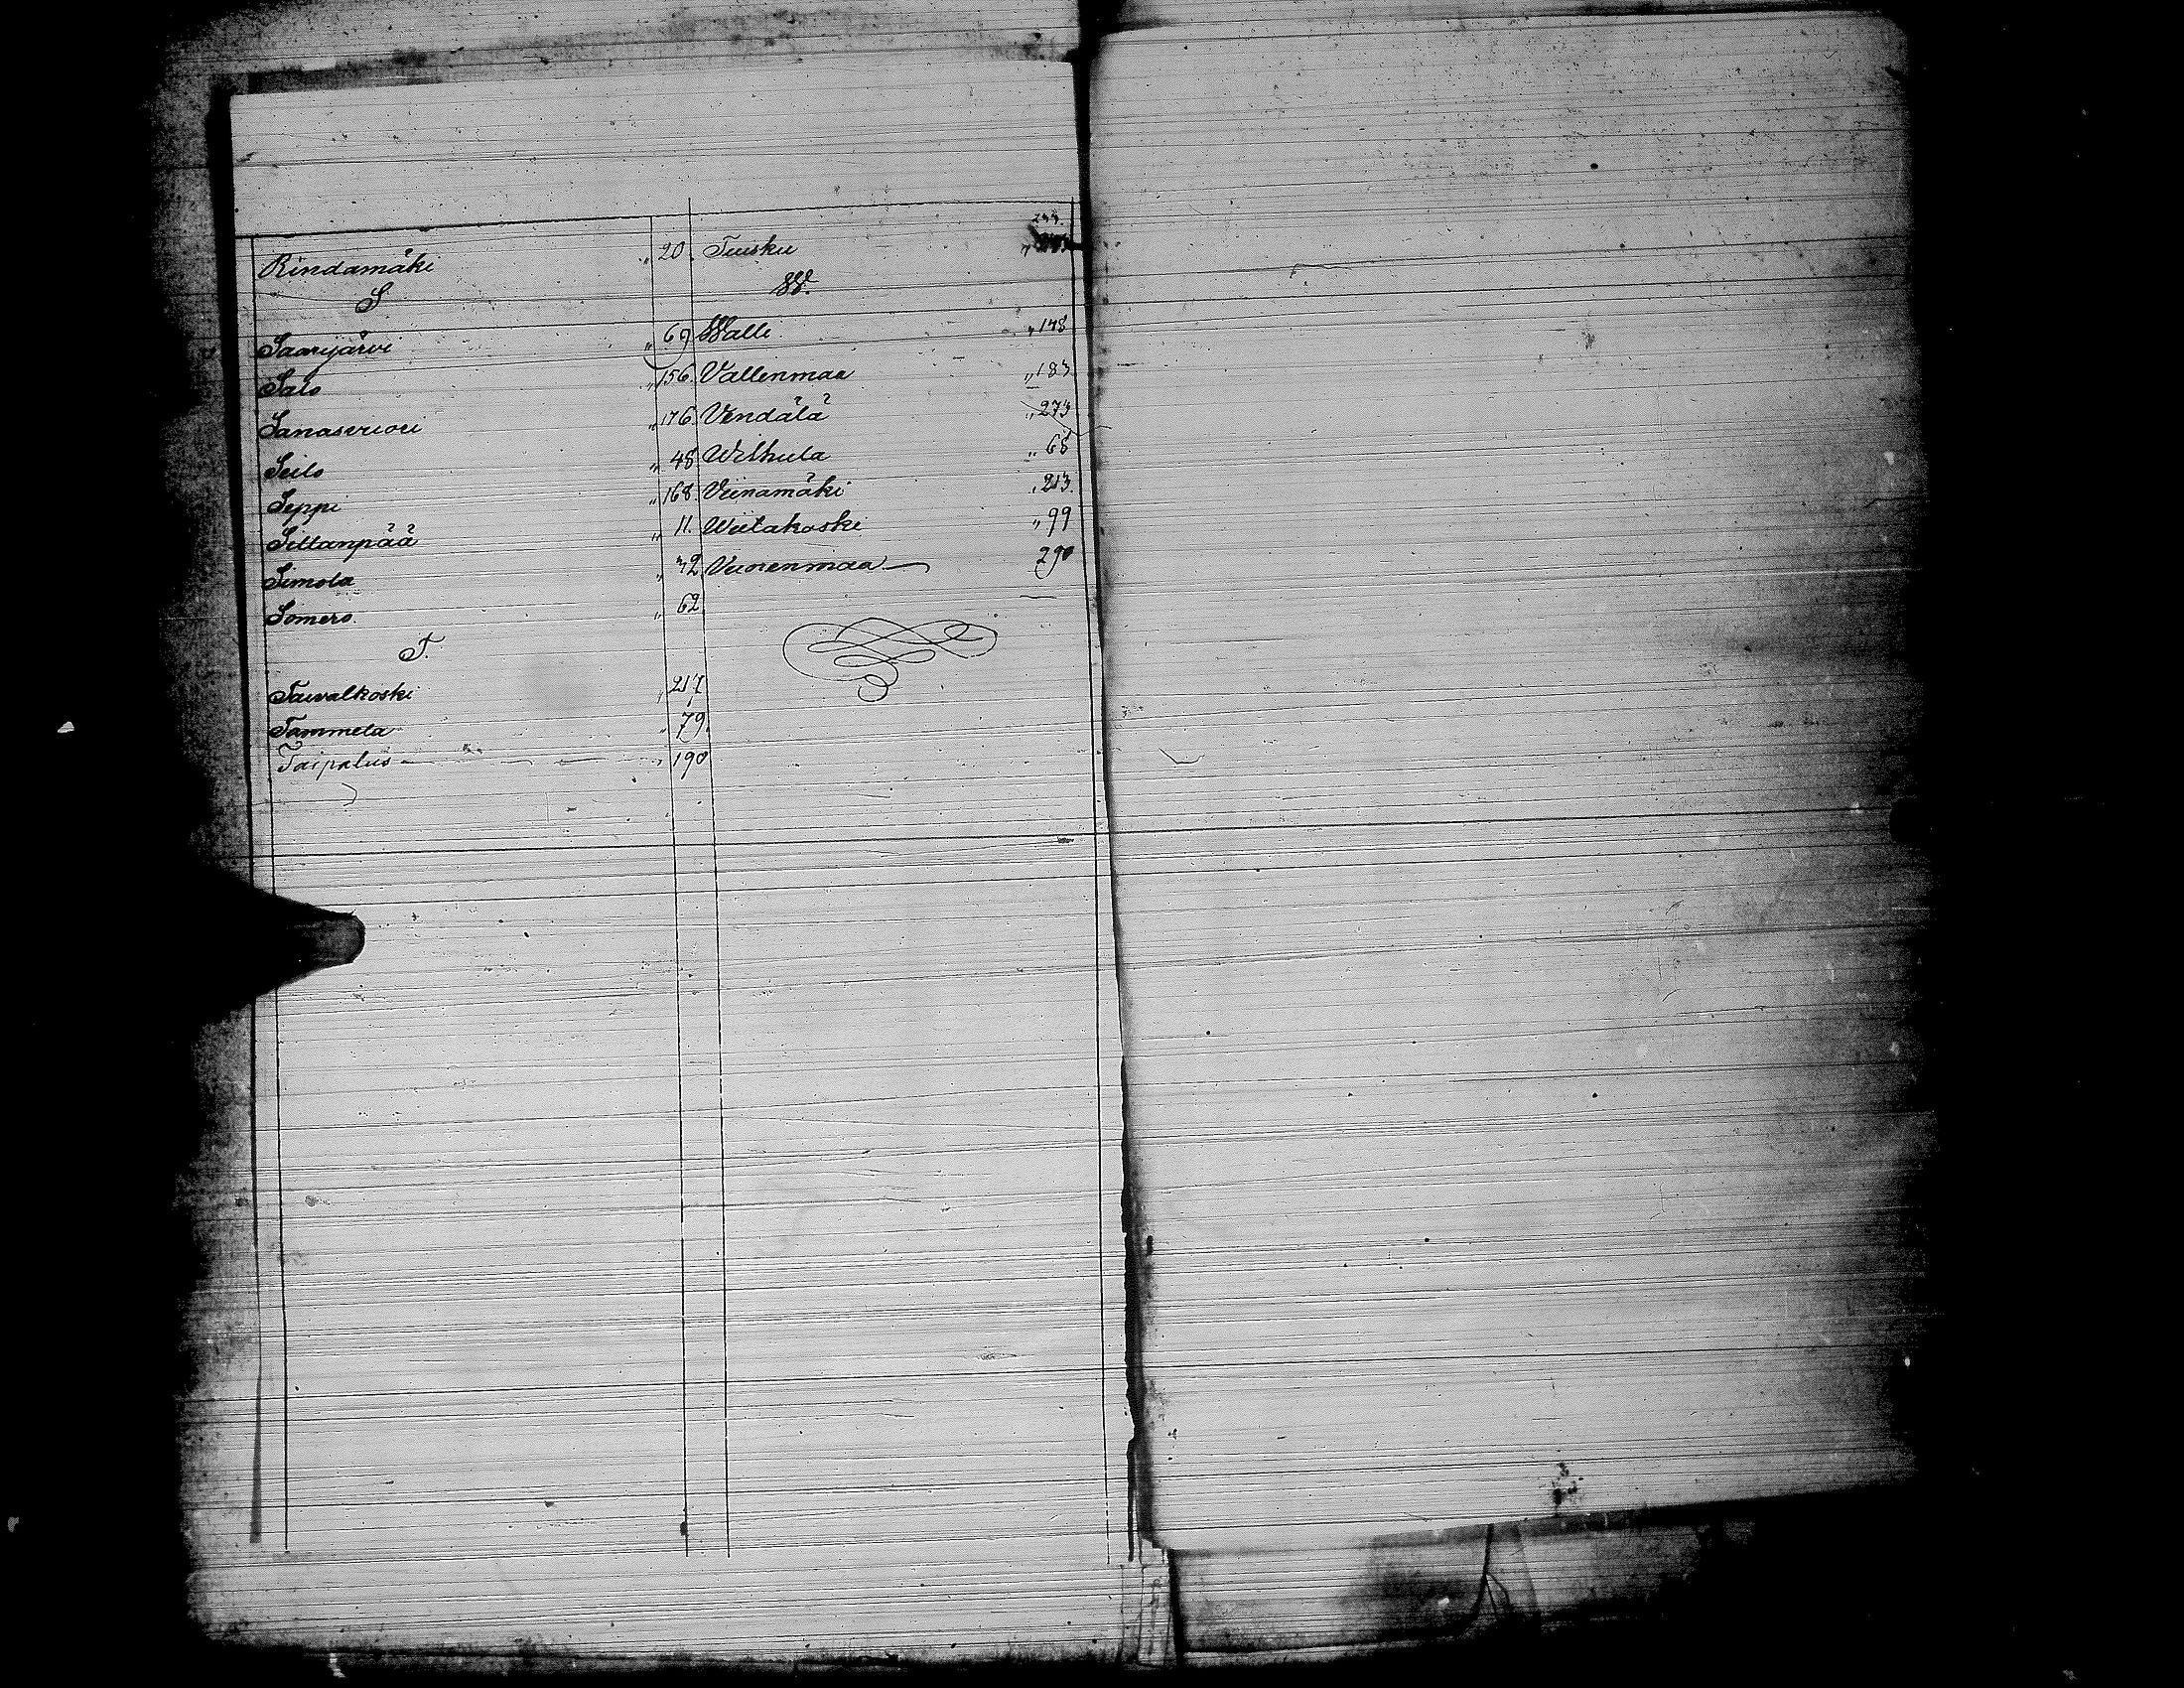 Rindamäki „ 20.
S
Saarijärvi „ 69
Salo „ 156.
Sanasvuori „ 176
Seilo „ 48
Seppi „ 168.
Siltanpää „ 11.
Simola „ 32
Somero. „ 62
T.
Taivalkoski „ 217
Tammela „ 79
Taipalus „ 190
Tuisku „ 244.
W.
Walli „ 148
Vallenmaa „ 183
Vendälä „ 273
Wilkula „ 68
Viinamäki „ 213.
Wiitakoski „ 99
Vuorenmaa 290